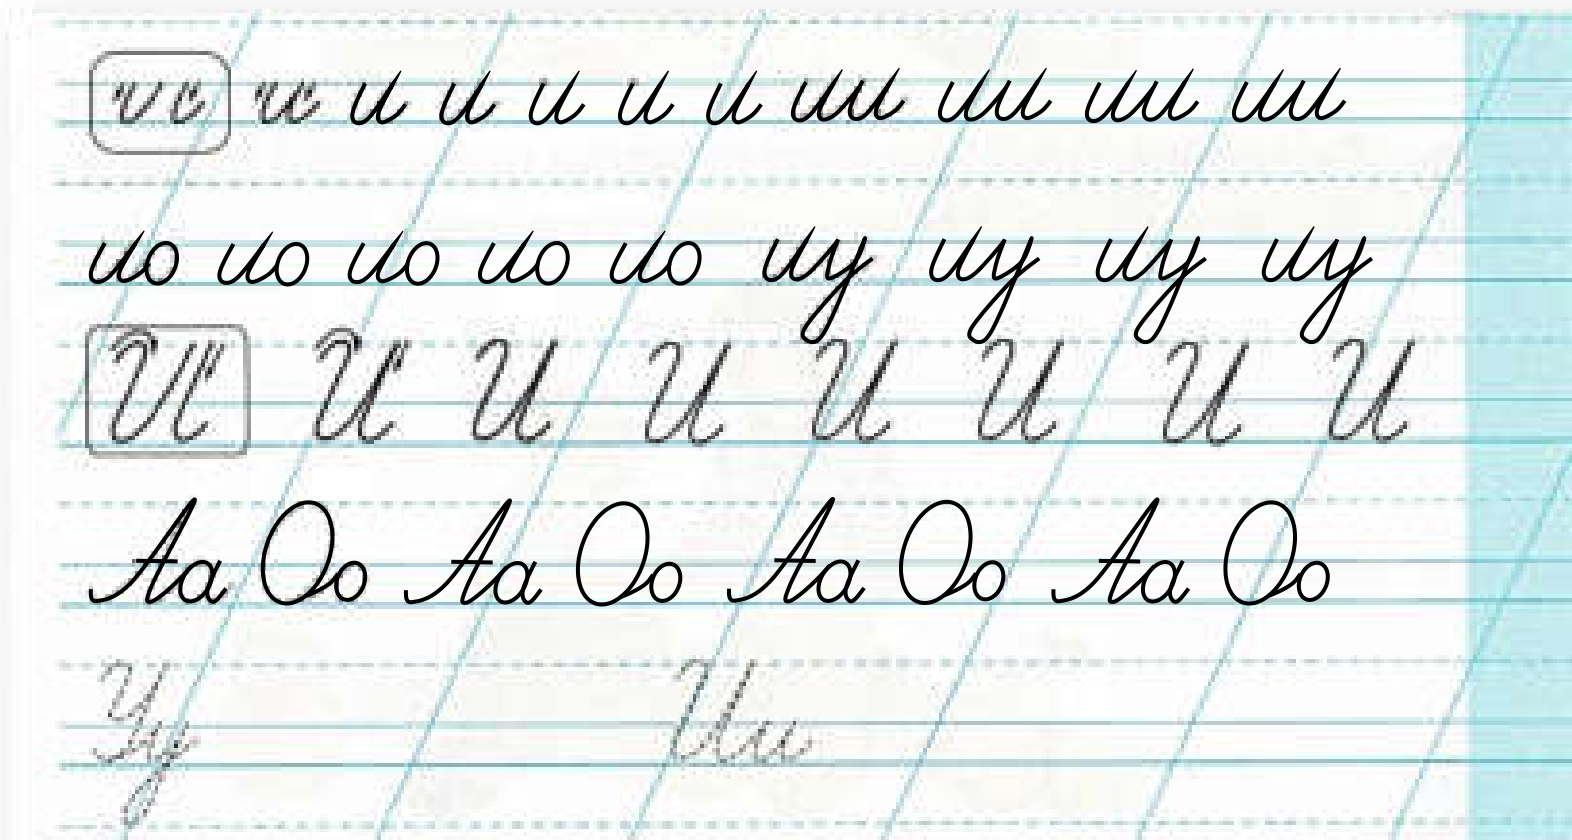 и и и и и и ии ии ии ии
ио ио ио ио ио иу иу иу иу
И И И И И И И
Аа Оо Аа Оо Аа Оо Аа Оо
Уу Ии